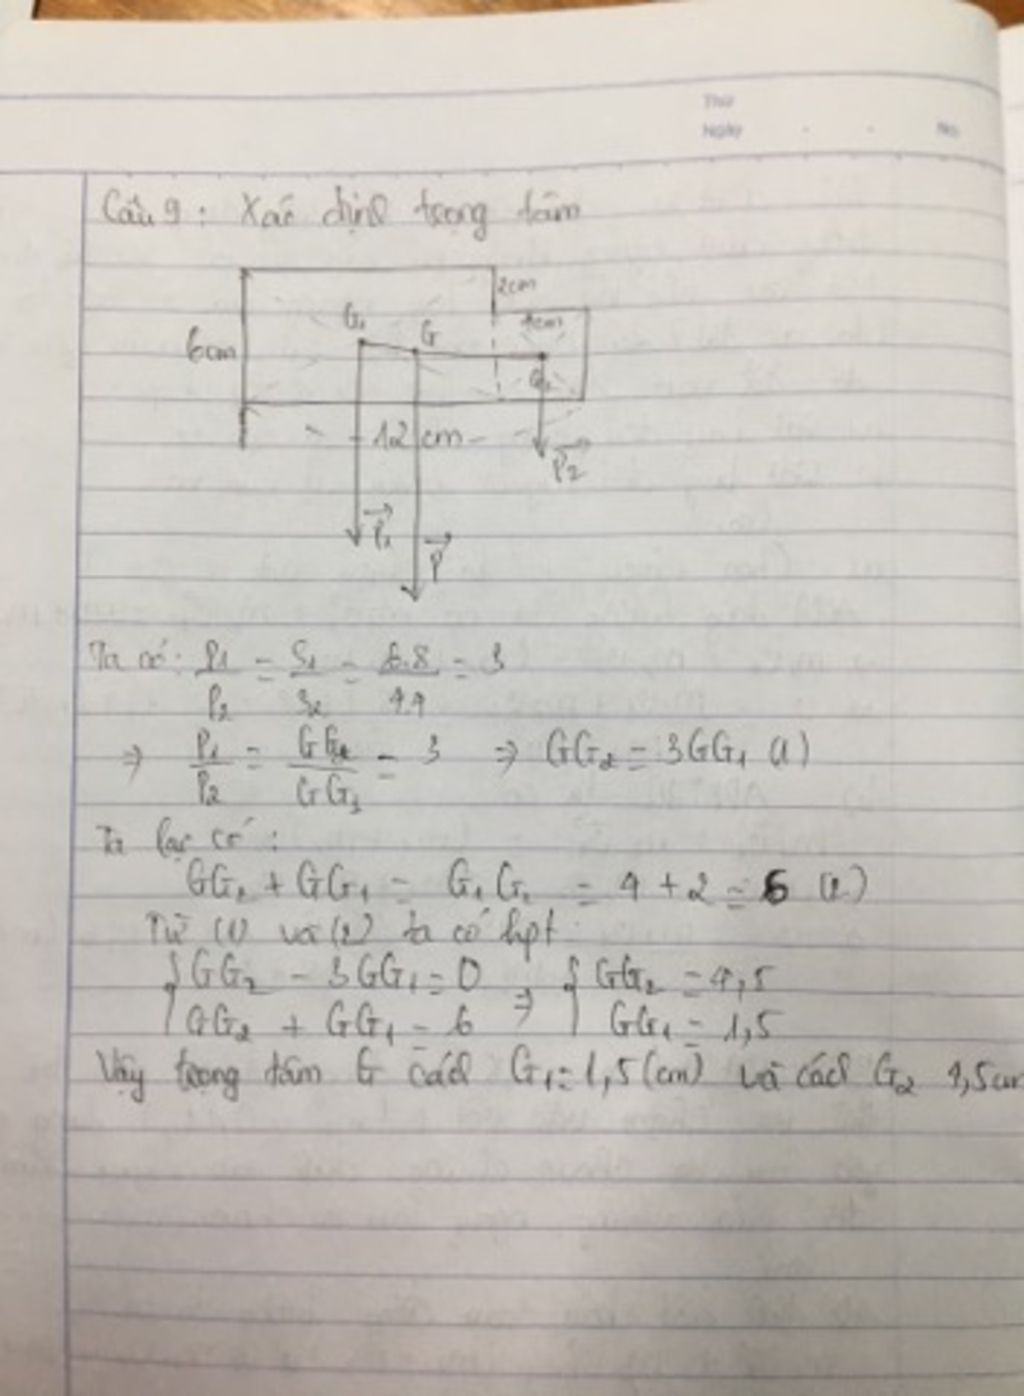 Thứ
Ngày . . No
Câu 9: Xác định trọng tâm
2cm
4cm
G₁
G
6cm
G₂
12 cm
P₂
P₁
P
Ta có: P₁/P₂ = S₁/S₂ = 6.8/4.4 = 3
⇒ P₁/P₂ = GG₂/GG₁ = 3 ⇒ GG₂ = 3GG₁ (1)
Ta lại có:
GG₂ + GG₁ = G₁G₂ = 4 + 2 = 6 (2)
Từ (1) và (2) ta có hpt
{ GG₂ - 3GG₁ = 0 ⇒ { GG₂ = 4,5
GG₂ + GG₁ = 6 GG₁ = 1,5
Vậy trọng tâm G cách G₁ = 1,5 (cm) và cách G₂ 4,5cm